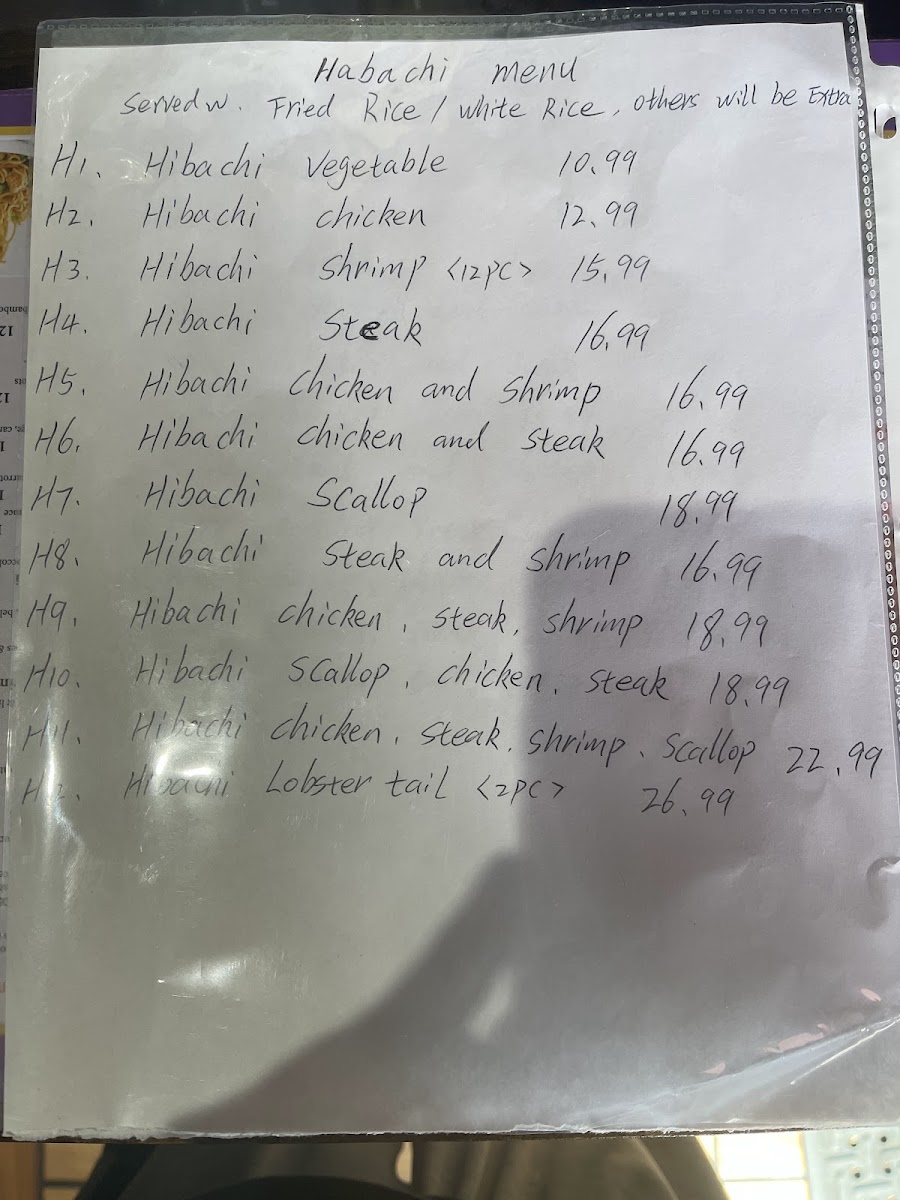 Habachi menu
Served w. Fried Rice / white Rice, others will be Extra
H1. Hibachi vegetable 10.99
H2. Hibachi chicken 12.99
H3. Hibachi shrimp <12PC> 15.99
H4. Hibachi Steak 16.99
H5. Hibachi chicken and shrimp 16.99
H6. Hibachi chicken and steak 16.99
H7. Hibachi Scallop 18.99
H8. Hibachi Steak and shrimp 16.99
H9. Hibachi chicken, steak, shrimp 18.99
H10. Hibachi Scallop, chicken, steak 18.99
H11. Hibachi chicken, steak, shrimp, scallop 22.99
H12. Hibachi Lobster tail <2PC> 26.99